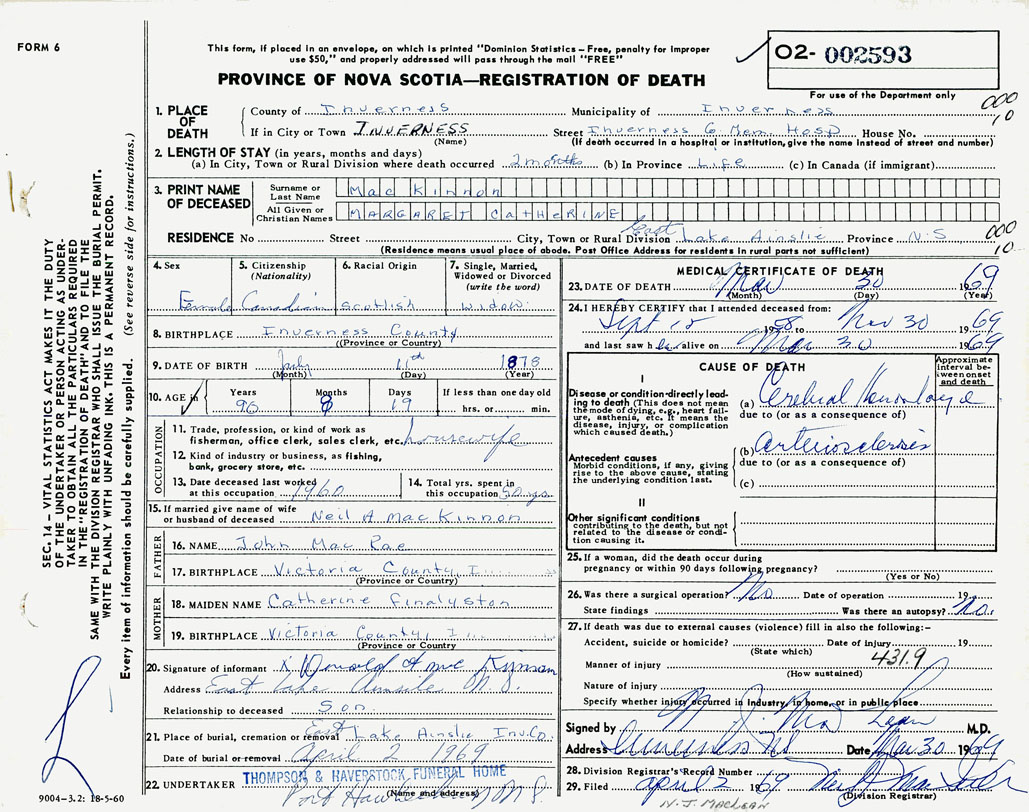 FORM 6
This form, if placed in an envelope, on which is printed "Dominion Statistics – Free, penalty for improper
use $50," and properly addressed will pass through the mail "FREE"
PROVINCE OF NOVA SCOTIA—REGISTRATION OF DEATH
02- 002593
For use of the Department only
000
10
1. PLACE OF DEATH
County of Inverness Municipality of Inverness
If in City or Town INVERNESS Street Inverness Co Mem. Hosp House No.
(Name) (If death occurred in a hospital or institution, give the name instead of street and number)
2. LENGTH OF STAY (in years, months and days)
(a) In City, Town or Rural Division where death occurred 2 months (b) In Province Life (c) In Canada (if immigrant)
3. PRINT NAME OF DECEASED
Surname or Last Name Mac Kinnon
All Given or Christian Names MARGARET CATHERINE
RESIDENCE No Street City, Town or Rural Division East Lake Ainslie Province N.S
000
10
(Residence means usual place of abode. Post Office Address for residents in rural parts not sufficient)
4. Sex 5. Citizenship (Nationality) 6. Racial Origin 7. Single, Married, Widowed or Divorced (write the word)
Female Canadian Scottish Widow
8. BIRTHPLACE Inverness County
(Province or County)
9. DATE OF BIRTH July 11th 1878
(Month) (Day) (Year)
10. AGE in Years Months Days If less than one day old
90 8 19 hrs. or min.
OCCUPATION
11. Trade, profession, or kind of work as
fisherman, office clerk, sales clerk, etc. housewife
12. Kind of industry or business, as fishing,
bank, grocery store, etc.
13. Date deceased last worked at this occupation 1960
14. Total yrs. spent in this occupation 50 yrs.
15. If married give name of wife
or husband of deceased Neil A Mac Kinnon
FATHER
16. NAME John Mac Rae
17. BIRTHPLACE Victoria County, I
(Province or County)
MOTHER
18. MAIDEN NAME Catherine Finalyston
19. BIRTHPLACE Victoria County, I
(Province or County
20. Signature of informant X Donald A mc Kynnon
Address East Lake Ainslie N.S.
Relationship to deceased Son
21. Place of burial, cremation or removal East Lake Ainslie Inv. Co.
Date of burial or removal April 2 1969
22. UNDERTAKER THOMPSON & HAVERSTOCK FUNERAL HOME
(Name and address)
Port N.S.
MEDICAL CERTIFICATE OF DEATH
23. DATE OF DEATH Mar 30 1969
(Month) (Day) (Year)
24. I HEREBY CERTIFY that I attended deceased from:
Sept 15 1968 to Mar 30 1969
and last saw her alive on Mar 30 1969
CAUSE OF DEATH
Approximate interval between onset and death
I
Disease or condition directly leading to death (This does not mean the mode of dying, e.g., heart failure, asthenia, etc. It means the disease, injury, or complication which caused death.)
(a) Cerebral Hemorrhage
due to (or as a consequence of)
Antecedent causes
Morbid conditions, if any, giving rise to the above cause, stating the underlying condition last.
(b) Arteriosclerosis
due to (or as a consequence of)
(c)
II
Other significant conditions
contributing to the death, but not related to the disease or condition causing it.
25. If a woman, did the death occur during
pregnancy or within 90 days following pregnancy?
(Yes or No)
26. Was there a surgical operation? No Date of operation 19
State findings Was there an autopsy? No.
27. If death was due to external causes (violence) fill in also the following:-
Accident, suicide or homicide? Date of injury 19
(State which)
431.9
Manner of injury
(How sustained)
Nature of injury
Specify whether injury occurred in Industry, in home, or in public place
Signed by N. J. Mac Lean M.D.
Address Inverness NS Date Mar 30 1969
28. Division Registrar's Record Number
29. Filed april 2 1969
(Division Registrar)
N. J. MACLEAN
SEC. 14 – VITAL STATISTICS ACT MAKES IT THE DUTY
OF THE UNDERTAKER OR PERSON ACTING AS UNDER-
TAKER TO OBTAIN ALL THE PARTICULARS REQUIRED
IN THE "REGISTRATION OF DEATH" AND TO FILE THE
SAME WITH THE DIVISION REGISTRAR WHO SHALL ISSUE THE BURIAL PERMIT.
WRITE PLAINLY WITH UNFADING INK. THIS IS A PERMANENT RECORD.
Every item of information should be carefully supplied. (See reverse side for instructions.)
9004-3.2: 18-5-60